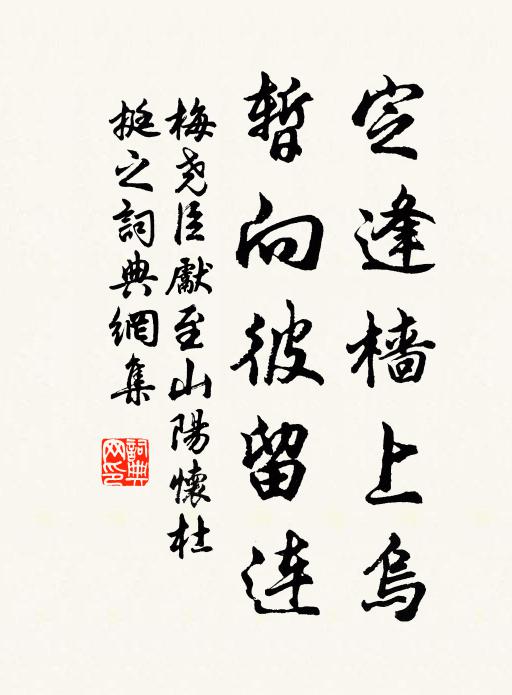 定逢檣上烏
暫向彼留連
梅尧臣獻至山陽懷杜
挺之詞典網集
詞典网印